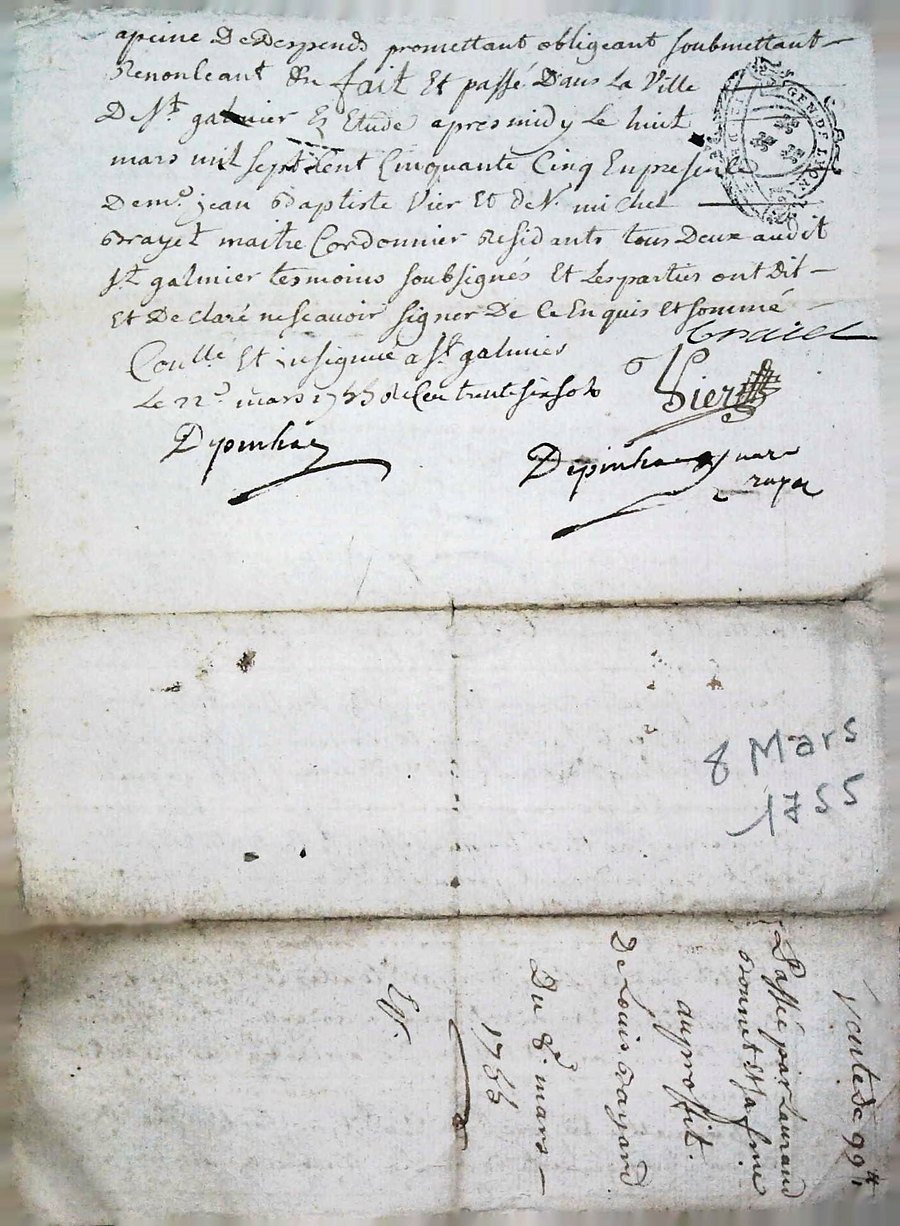 apeine De Despends promettant obligeant soubmettant
Renonceant &n fait Et passé Dans La Ville
De St. galmier Ez Etude apres midy Le huit
mars mil sept Cent Cinquante Cinq En presence
De me. jean Baptiste Vier Et de Sr. michel
Brayet maitre Cordonnier Residants tous Deux audit
St. galmier tesmoins soubsignés Et Les parties ont Dit
Et De claré ne scavoir signer De Ce En quis Et sommé
Coullé Et a St. galmier
Le 22e. mars 1755 Cen trente six sols
Vier
GEN. DE LYON
8 Mars
1755
Vente de 99tt
Passée par Laurand
Bonnet Et sa fme
au proffit.
De Louis Bayard
Du 8e. mars
1755